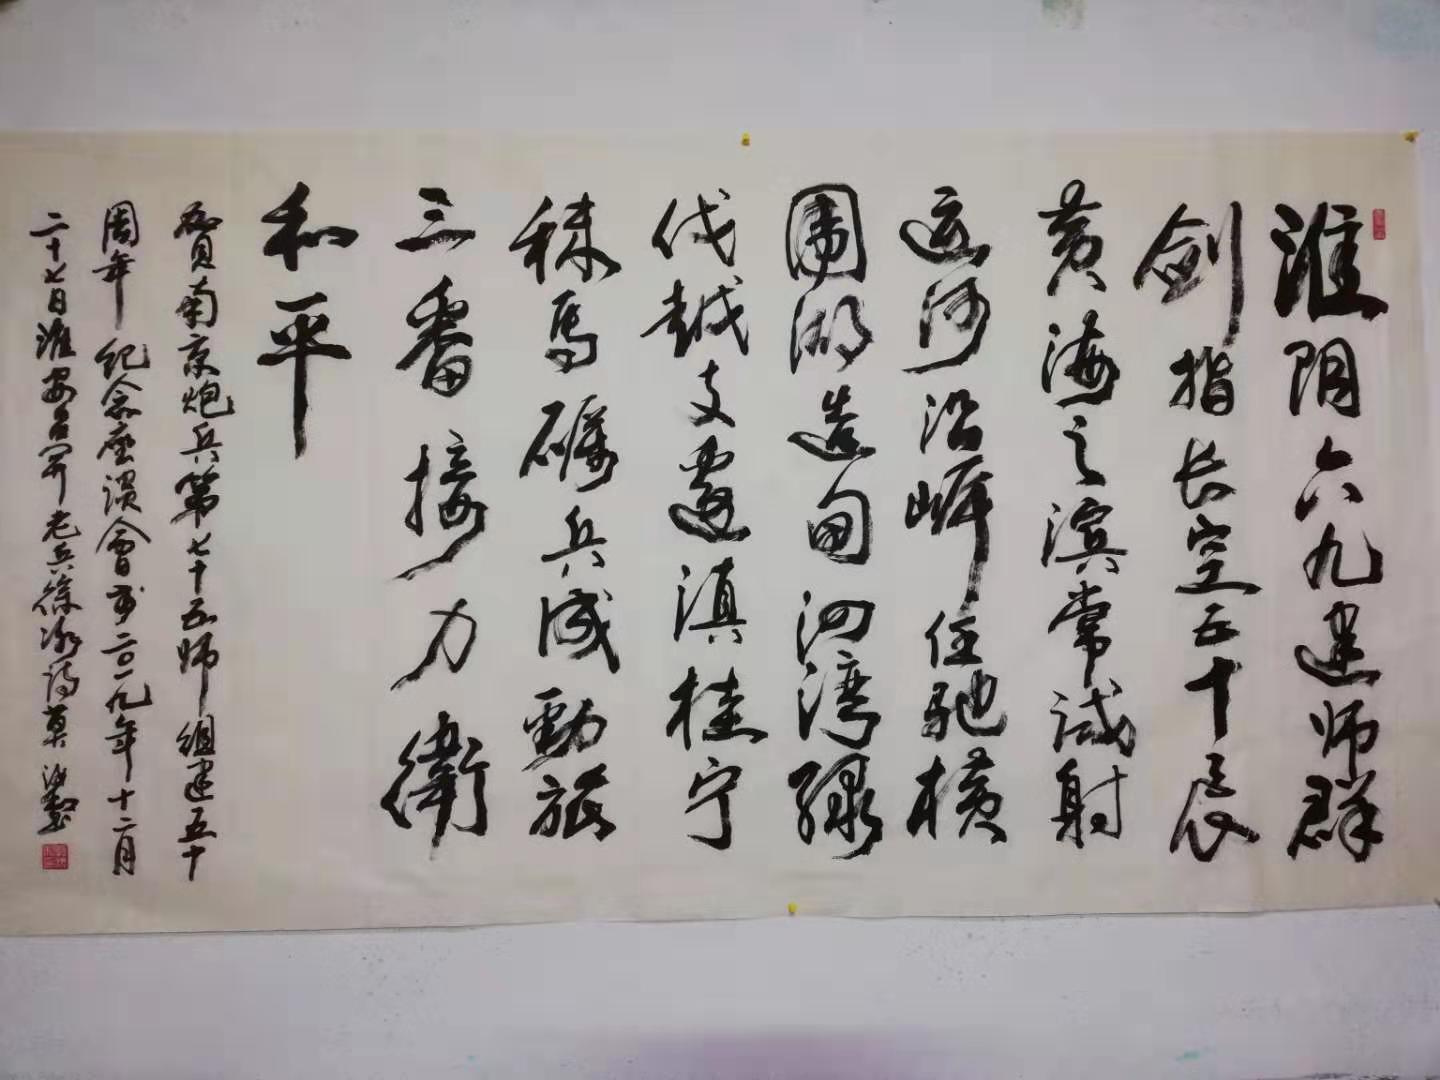 淮阴六九建师群
剑指长空五十辰
黄海之滨常试射
运河沿岸任驰横
围湖造田洄湾绿
伐越支边滇桂宁
秣马砺兵成劲旅
三番接力卫
和平
贺南京炮兵第七十五师组建五十
周年纪念座谈会 二〇一九年十二月
二十七日淮安 老兵徐 诗 书